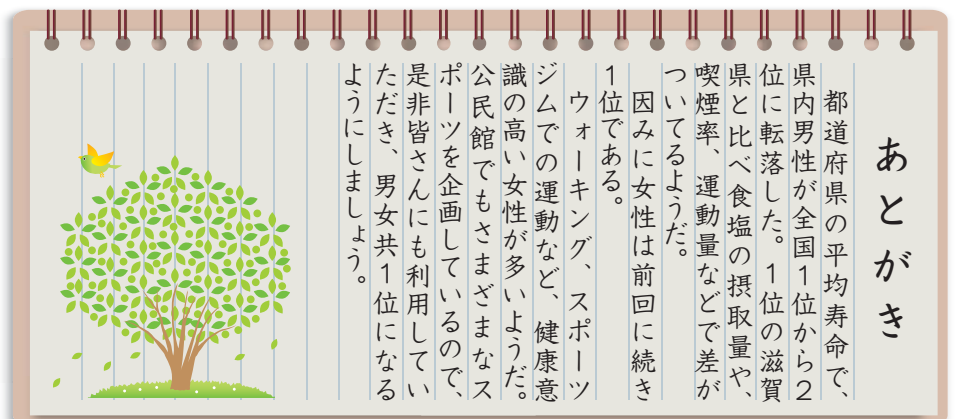 あとがき
都道府県の平均寿命で、
県内男性が全国1位から2
位に転落した。1位の滋賀
県と比べ食塩の摂取量や、
喫煙率、運動量などで差が
ついてるようだ。
因みに女性は前回に続き
1位である。
ウォーキング、スポーツ
ジムでの運動など、健康意
識の高い女性が多いようだ。
公民館でもさまざまなス
ポーツを企画しているので、
是非皆さんにも利用してい
ただき、男女共1位になる
ようにしましょう。